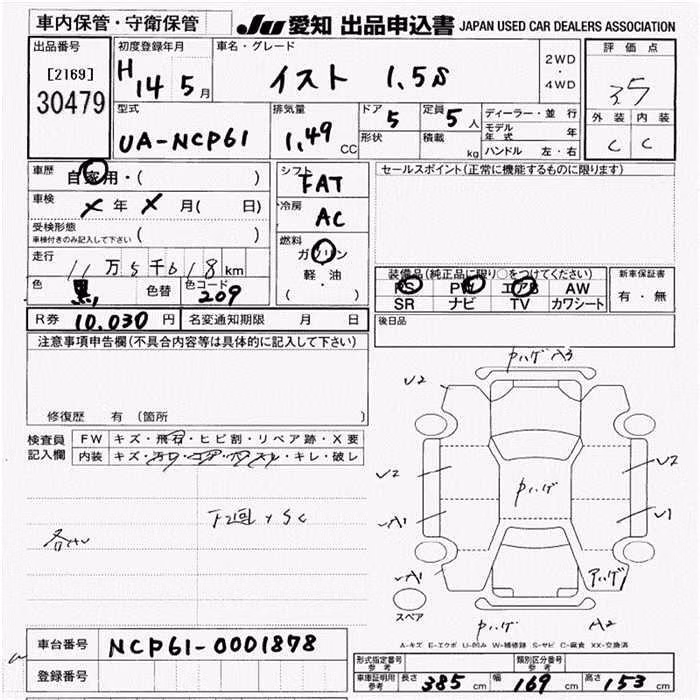 車内保管・守衛保管 JU 愛知 出品申込書 JAPAN USED CAR DEALERS ASSOCIATION
出品番号 初度登録年月 車名・グレード 2WD・4WD 評価点
[2169] H14 5月 イスト 1.5S 3.5
30479 型式 排気量 ドア 5 定員 5人 ディーラー・並行 外装 内装
UA-NCP61 1.49 CC 形状 積載 kg モデル年式 年 C C
ハンドル 左・右
車歴 自家用・( ) シフト FAT セールスポイント(正常に機能するものに限ります)
車検 X年 X月( 日) 冷房 AC
受検形態 車検付きのみ記入して下さい ( ) 燃料 ガソリン
走行 11万5千618km 軽・油 装備品(純正品に限り○をつけてください) 新車保証書
色 黒 色替 色コード 209 ( ) PS PW エアB AW 有・無
SR ナビ TV カワシート
R券 10,030円 名変通知期限 月 日 後日品
注意事項申告欄(不具合内容等は具体的に記入して下さい)
修復歴 有 (箇所 )
検査員 記入欄 FW キズ・飛石・ヒビ割・リペア跡・X要
内装 キズ・キレ・破レ
ハゲ A3
V2
V2 ハゲ V2
A1 V1
A1 アハゲ
スペア
ハゲ A2
A-キズ E-エクボ U-凹み W-補修跡 S-サビ C-腐食 XX-交換済
車台番号 NCP61-0001878
登録番号
形式指定番号 参考 類別区分番号 参考
車庫証明用 参考 長さ 385cm 幅 169cm 高さ 153cm